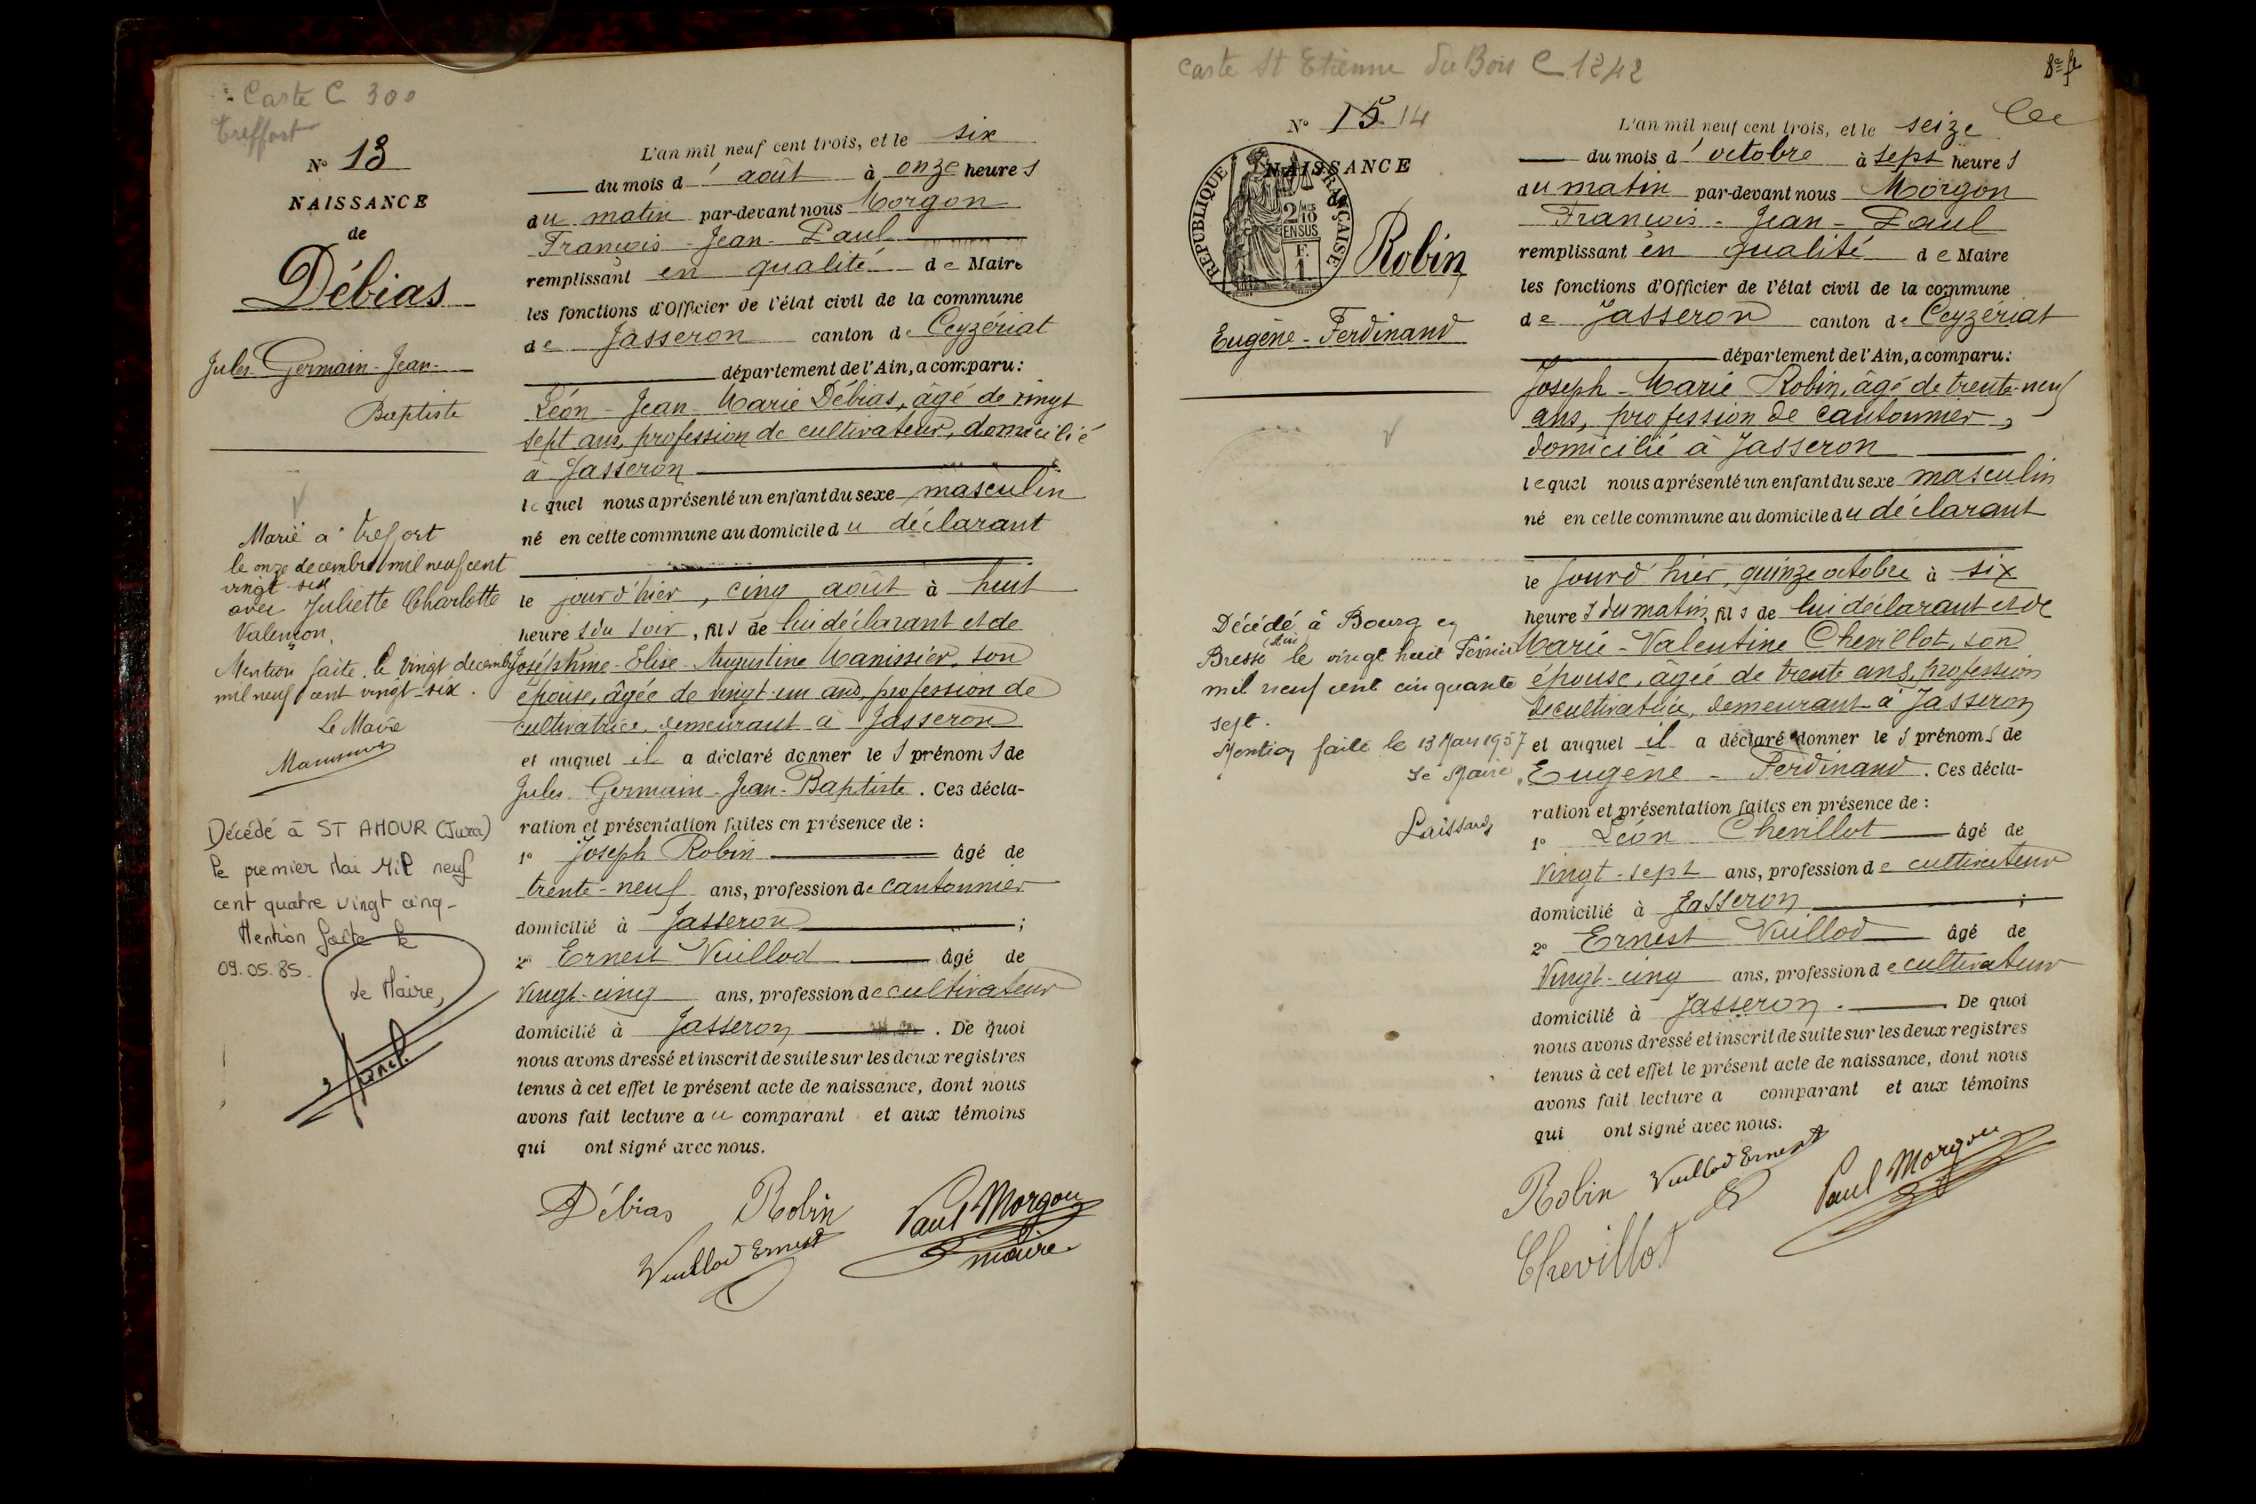 Carte C 300
Treffort
N° 13
NAISSANCE
de
Débias
Jules-Germain-Jean-
Baptiste
Marié à Treffort
le onze decembre mil neuf cent
vingt-six
avec Juliette Charlotte
Valençon.
Mention faite le vingt decembre
mil neuf cent vingt-six.
Le Maire
Décédé à ST AMOUR (Jura)
le premier Mai Mil neuf
cent quatre vingt cinq-
Mention faite le
09.05.85.
Le Maire,
L'an mil neuf cent trois, et le six
du mois d'août à onze heures
du matin par-devant nous Morgon
François-Jean-Paul
remplissant en qualité de Maire
les fonctions d'Officier de l'état civil de la commune
de Jasseron canton de Ceyzériat
département de l'Ain, a comparu:
Léon-Jean-Marie Débias, âgé de vingt
sept ans, profession de cultivateur, domicilié
à Jasseron
lequel nous a présenté un enfant du sexe masculin
né en cette commune au domicile du déclarant
le jourd'hier, cinq août à huit
heures du soir, fils de lui déclarant et de
Joséphine-Elise-Augustine Manissier, son
épouse, âgée de vingt-un ans, profession de
cultivatrice, demeurant à Jasseron
et auquel il a déclaré donner les prénoms de
Jules-Germain-Jean-Baptiste. Ces décla-
ration et présentation faites en présence de :
1° Joseph Robin âgé de
trente-neuf ans, profession de cantonnier
domicilié à Jasseron ;
2° Ernest Vuillod âgé de
vingt-cinq ans, profession de cultivateur
domicilié à Jasseron. De quoi
nous avons dressé et inscrit de suite sur les deux registres
tenus à cet effet le présent acte de naissance, dont nous
avons fait lecture au comparant et aux témoins
qui ont signé avec nous.
Débias Robin Paul Morgon
Vuillod Ernest maire
Carte St Etienne du Bois C 1242
8e f
N° 15 14
NAISSANCE
de
REPUBLIQUE FRANÇAISE
2/10
EN SUS
F.
1
Robin
Eugène-Ferdinand
Décédé à Bourg en
Bresse (Ain) le vingt huit Février
mil neuf cent cinquante
sept.
Mention faite le 13 Mars 1957
Le Maire
L'an mil neuf cent trois, et le seize
du mois d'octobre à sept heures
du matin par-devant nous Morgon
François-Jean-Paul
remplissant en qualité de Maire
les fonctions d'Officier de l'état civil de la commune
de Jasseron canton de Ceyzériat
département de l'Ain, a comparu:
Joseph-Marie Robin, âgé de trente-neuf
ans, profession de cantonnier,
domicilié à Jasseron
lequel nous a présenté un enfant du sexe masculin
né en cette commune au domicile du déclarant
le jourd'hier, quinze octobre à six
heures du matin, fils de lui déclarant et de
Marie-Valentine Chevillot, son
épouse, âgée de trente ans, profession
de cultivatrice, demeurant à Jasseron
et auquel il a déclaré donner les prénoms de
Eugène-Ferdinand. Ces décla-
ration et présentation faites en présence de :
1° Léon Chevillot âgé de
vingt-sept ans, profession de cultivateur
domicilié à Jasseron ;
2° Ernest Vuillod âgé de
vingt-cinq ans, profession de cultivateur
domicilié à Jasseron. De quoi
nous avons dressé et inscrit de suite sur les deux registres
tenus à cet effet le présent acte de naissance, dont nous
avons fait lecture a comparant et aux témoins
qui ont signé avec nous.
Robin Vuillod Ernest Paul Morgon
Chevillot